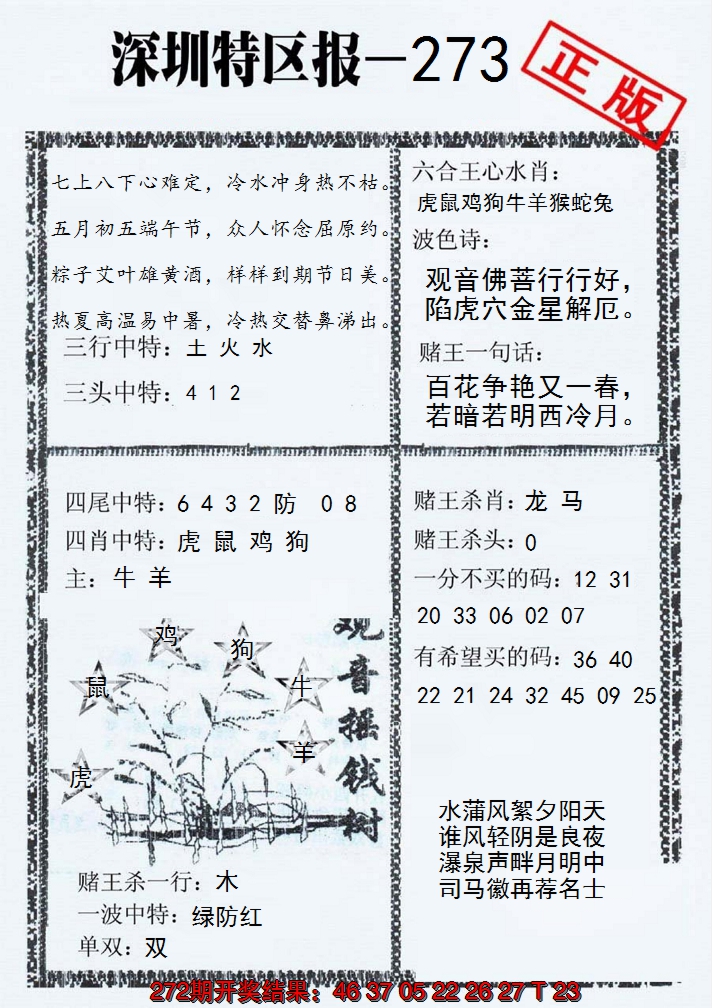 深圳特区报—273
正版
七上八下心难定，冷水冲身热不枯。
五月初五端午节，众人怀念屈原约。
粽子艾叶雄黄酒，样样到期节日美。
热夏高温易中暑，冷热交替鼻涕出。
三行中特：土 火 水
三头中特：4 1 2
六合王心水肖：
虎鼠鸡狗牛羊猴蛇兔
波色诗：
观音佛菩行行好，
陷虎穴金星解厄。
赌王一句话：
百花争艳又一春，
若暗若明西冷月。
四尾中特：6 4 3 2 防 0 8
四肖中特：虎 鼠 鸡 狗
主：牛 羊
鸡
狗
鼠
牛
羊
虎
观音摇钱树
赌王杀一行：木
一波中特：绿防红
单双：双
赌王杀肖：龙 马
赌王杀头：0
一分不买的码：12 31
20 33 06 02 07
有希望买的码：36 40
22 21 24 32 45 09 25
水蒲风絮夕阳天
谁风轻阴是良夜
瀑泉声畔月明中
司马徽再荐名士
272期开奖结果：46 37 05 22 26 27 T 23